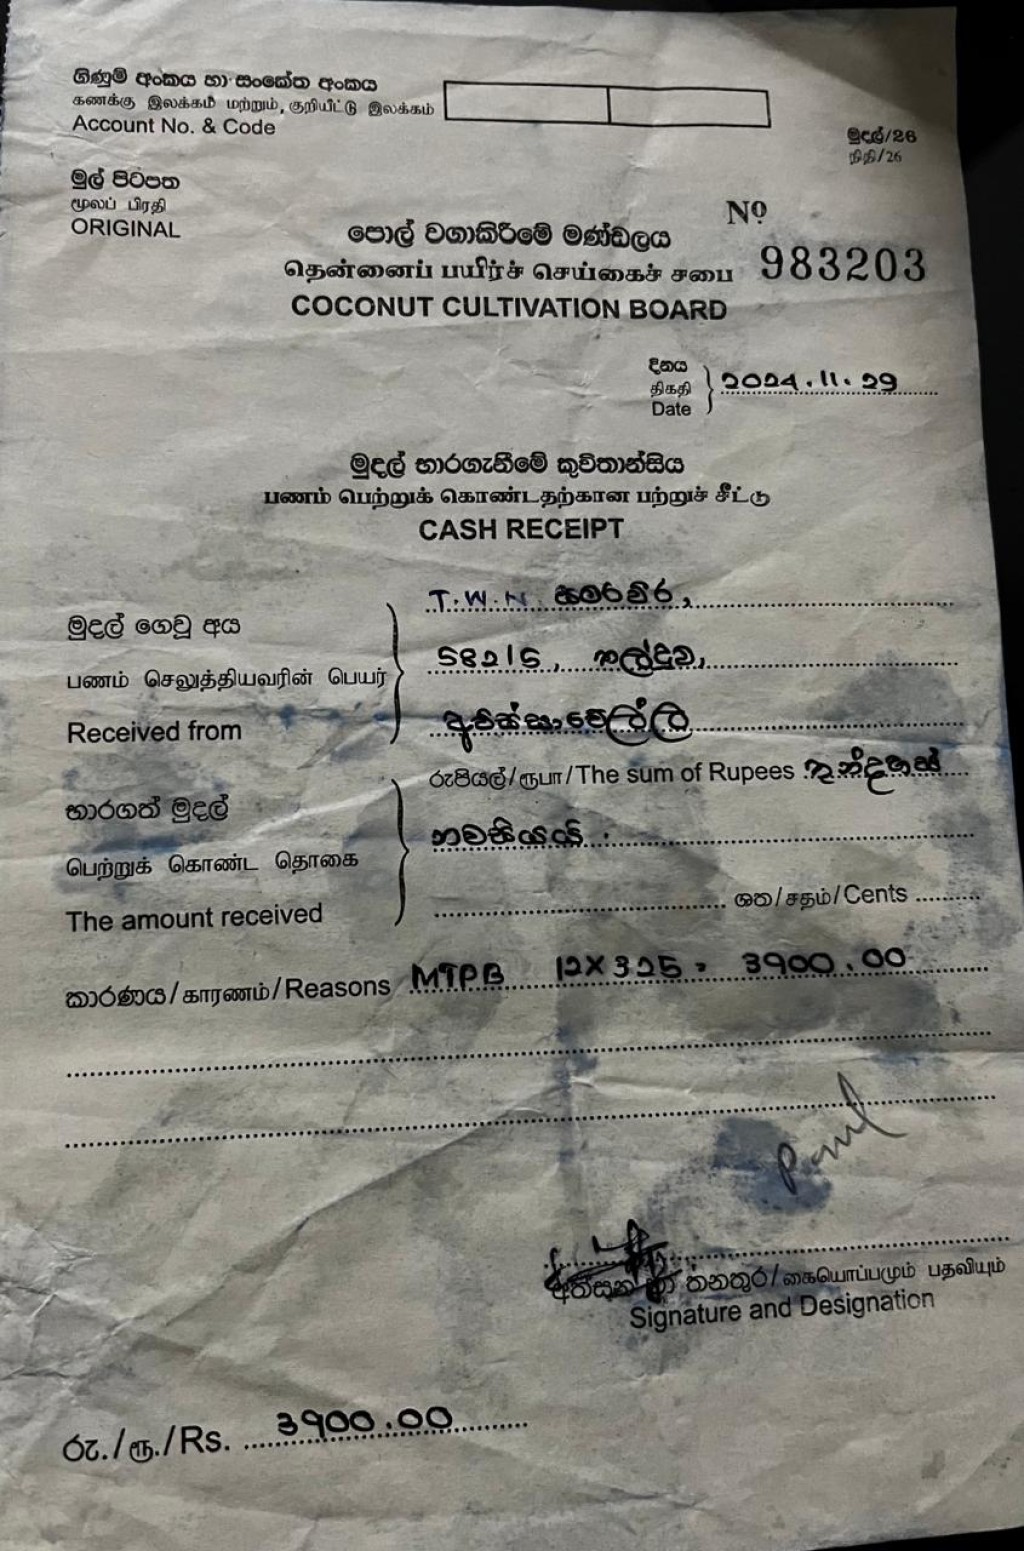 ගිණුම් අංකය හා සංකේත අංකය
கணக்கு இலக்கம் மற்றும், குறியீட்டு இலக்கம்
Account No. & Code
මුදල්/26
நிதி/26
මුල් පිටපත
மூலப் பிரதி
ORIGINAL
Nº
983203
පොල් වගාකිරීමේ මණ්ඩලය
தென்னைப் பயிர்ச் செய்கைச் சபை
COCONUT CULTIVATION BOARD
දිනය
திகதி
Date
2024.11.29
මුදල් භාරගැනීමේ කුවිතාන්සිය
பணம் பெற்றுக் கொண்டதற்கான பற்றுச் சீட்டு
CASH RECEIPT
මුදල් ගෙවූ අය
பணம் செலுத்தியவரின் பெயர்
Received from
T.W.N. සමරවීර,
582/5, තල්දූව,
අවිස්සාවේල්ල
රුපියල්/ரூபா/The sum of Rupees තුන්දහස්
නවසියයි.
භාරගත් මුදල්
பெற்றுக் கொண்ட தொகை
The amount received
ශත/சதம்/Cents
කාරණය/காரணம்/Reasons MTPB 12X325 = 3900.00
අත්සන හා තනතුර/கையொப்பமும் பதவியும்
Signature and Designation
රු./ரூ./Rs. 3900.00